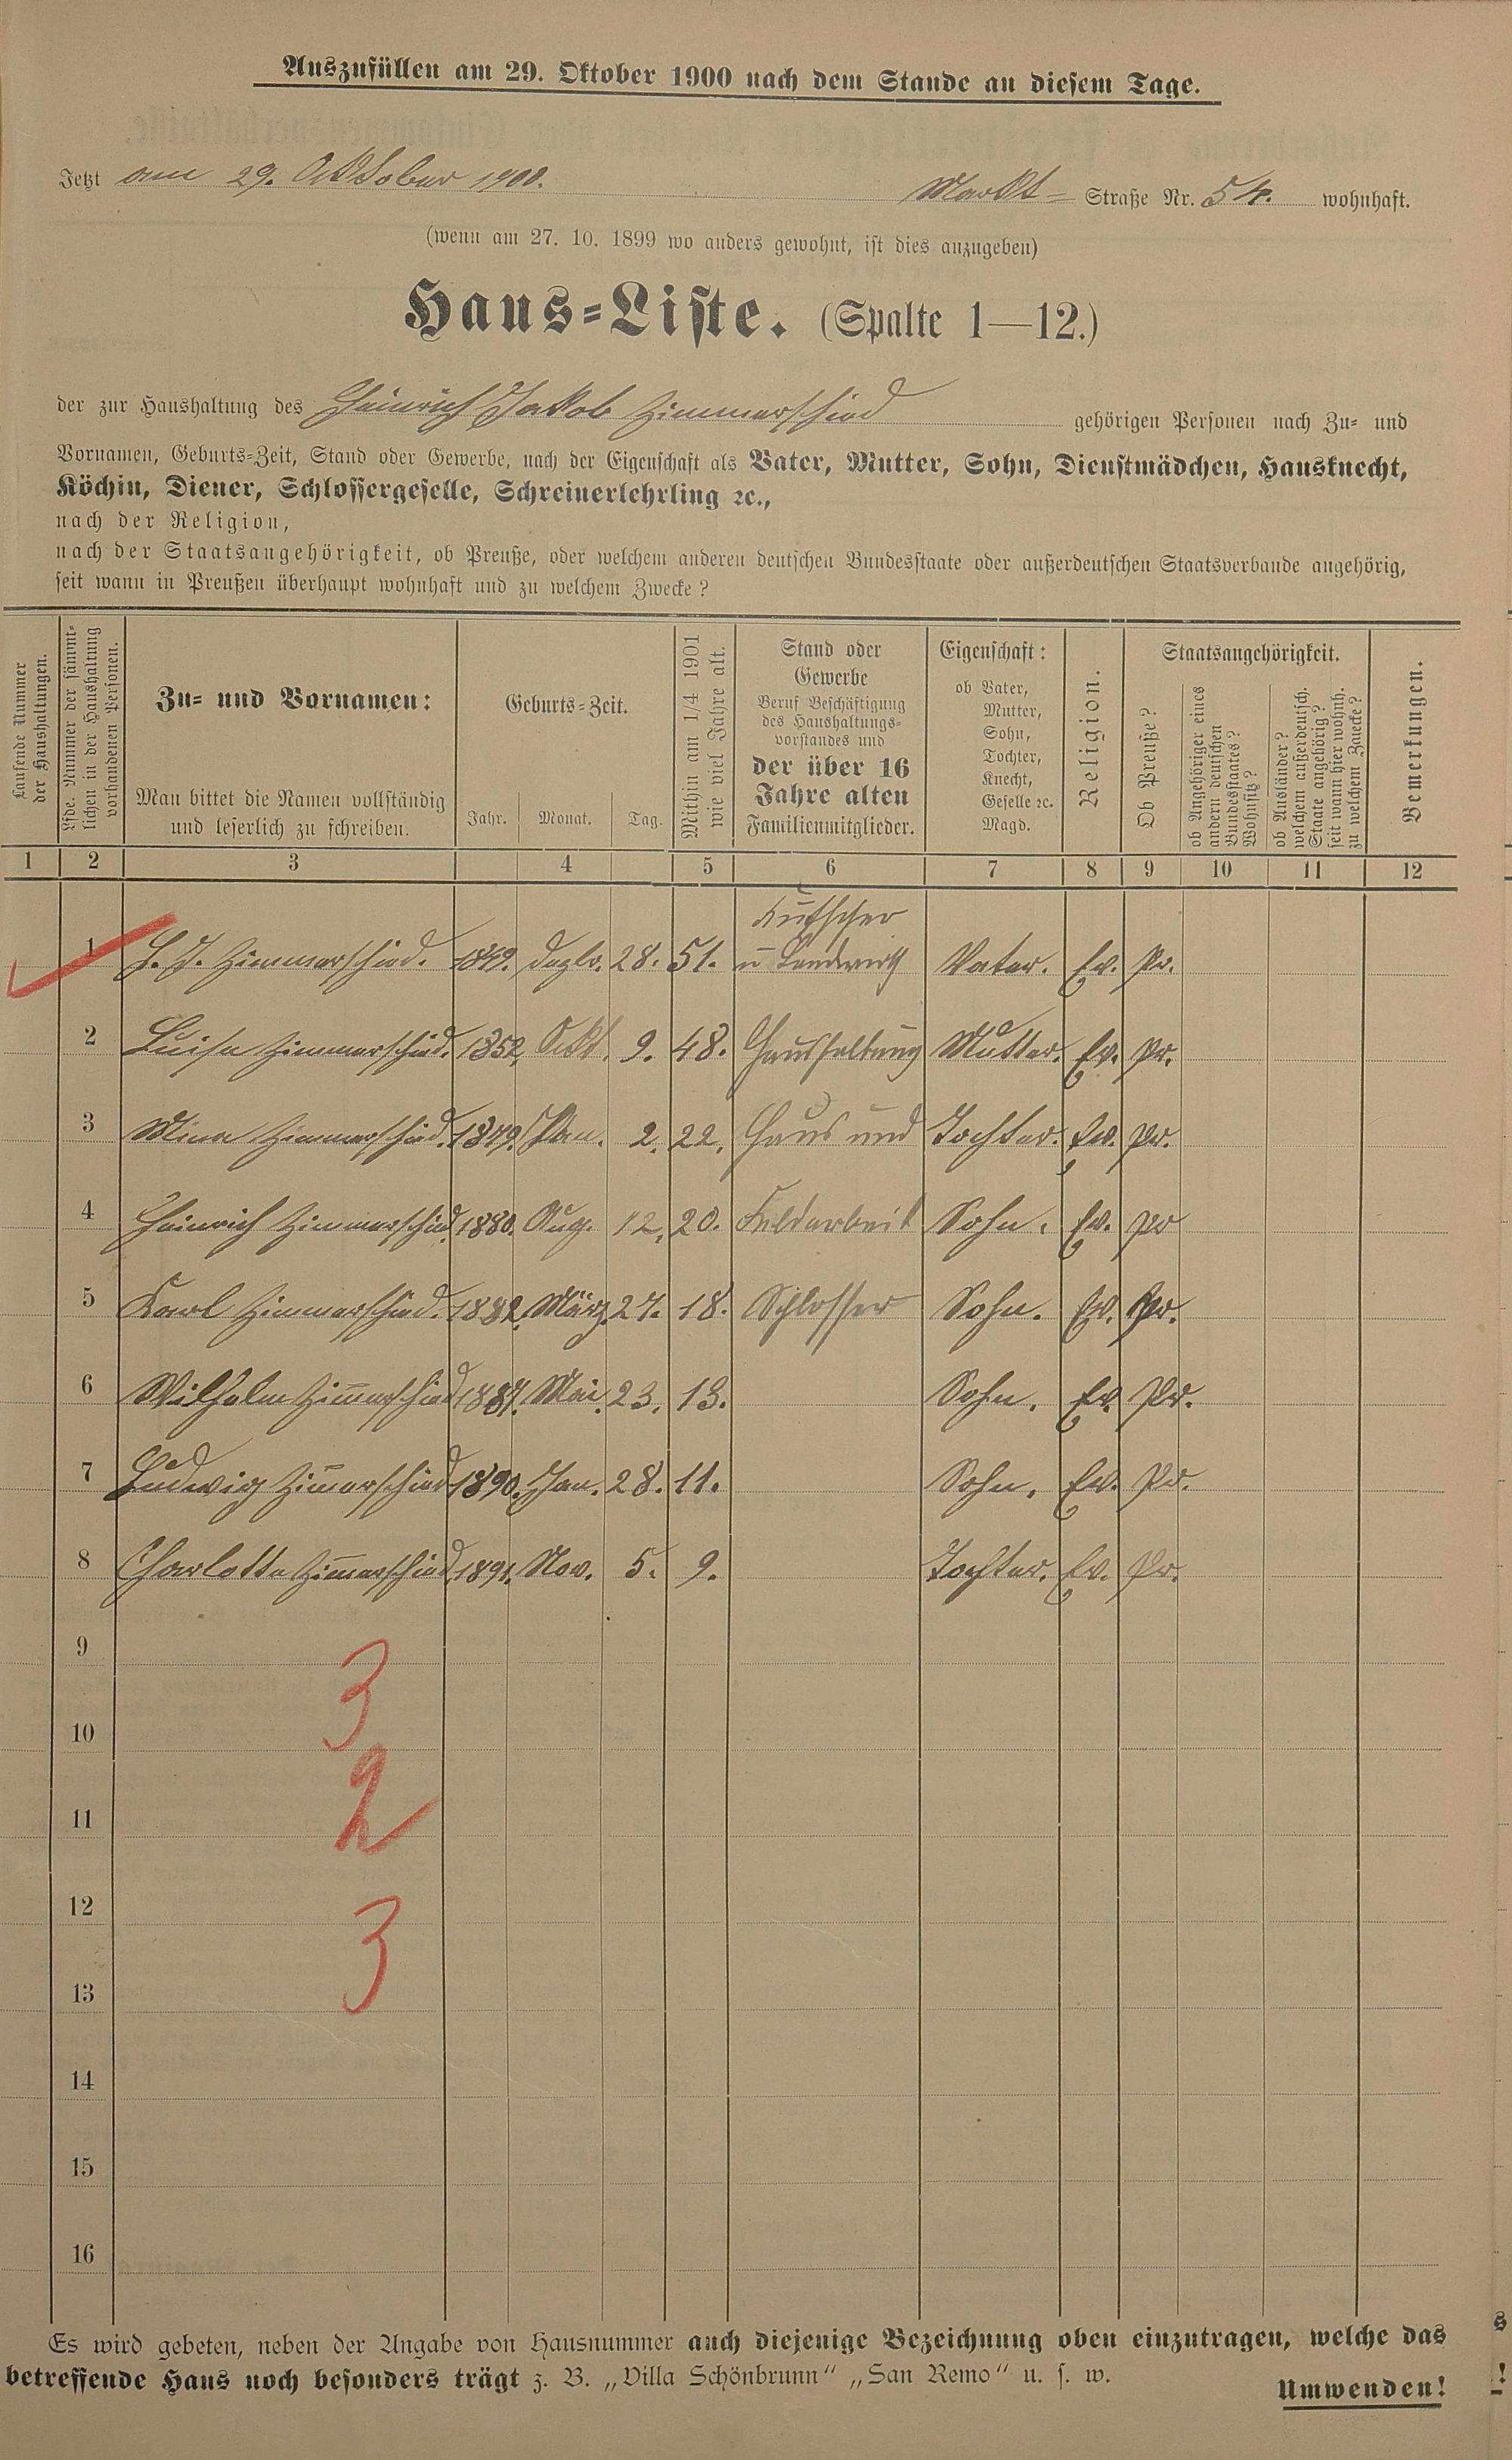 Auszufüllen am 29. Oktober 1900 nach dem Stande an diesem Tage.
Jetzt am 29. Oktober 1900. Markt- Straße Nr. 54. wohnhaft.
(wenn am 27. 10. 1899 wo anders gewohnt, ist dies anzugeben)
Haus-Liste. (Spalte 1—12.)
der zur Haushaltung des Heinrich Jakob Zimmerschied gehörigen Personen nach Zu- und
Vornamen, Geburts-Zeit, Stand oder Gewerbe, nach der Eigenschaft als Vater, Mutter, Sohn, Dienstmädchen, Hausknecht,
Köchin, Diener, Schlossergeselle, Schreinerlehrling ꝛc.,
nach der Religion,
nach der Staatsangehörigkeit, ob Preuße, oder welchem anderen deutschen Bundesstaate oder außerdeutschen Staatsverbande angehörig,
seit wann in Preußen überhaupt wohnhaft und zu welchem Zwecke?
Laufende Nummer
der Haushaltungen.
Lfde. Nummer der sämmt-
lichen in der Haushaltung
vorhandenen Personen.
Zu- und Vornamen:
Man bittet die Namen vollständig
und leserlich zu schreiben.
Geburts-Zeit.
Jahr. Monat. Tag.
Mithin am 1/4 1901
wie viel Jahre alt.
Stand oder
Gewerbe
Beruf Beschäftigung
des Haushaltungs-
vorstandes und
der über 16
Jahre alten
Familienmitglieder.
Eigenschaft:
ob Vater,
Mutter,
Sohn,
Tochter,
Knecht,
Geselle ꝛc.
Magd.
Religion.
Staatsangehörigkeit.
Ob Preuße?
ob Angehöriger eines
andern deutschen
Bundesstaates?
Wohnsitz?
ob Ausländer?
welchem außerdeutsch.
Staate angehörig?
seit wann hier wohnh.
zu welchem Zwecke?
Bemerkungen.
1 2 3 4 5 6 7 8 9 10 11 12
Kutscher
1 H. J. Zimmerschied. 1849. Dezbr. 28. 51. u Landwirth Vater. Ev. Pr.
2 Luise Zimmerschied. 1852. Okt. 9. 48. Haushaltung Mutter. Ev. Pr.
3 Mina Zimmerschied. 1879. Jan. 2. 22. Haus und Tochter. Ev. Pr.
4 Heinrich Zimmerschied. 1880. Aug. 12. 20. Feldarbeit Sohn. Ev. Pr
5 Karl Zimmerschied. 1882. März. 27. 18. Schlosser Sohn. Ev. Pr.
6 Wilhelm Zim̅erschied 1887. Mai. 23. 13. Sohn. Ev. Pr.
7 Ludwig Zim̅erschied 1890. Jan. 28. 11. Sohn. Ev. Pr.
8 Charlotte Zim̅erschied 1891. Nov. 5. 9. Tochter. Ev. Pr.
9
3
10
2
11
12
3
13
14
15
16
Es wird gebeten, neben der Angabe von Hausnummer auch diejenige Bezeichnung oben einzutragen, welche das
betreffende Haus noch besonders trägt z. B. „Villa Schönbrunn“ „San Remo“ u. s. w.
Umwenden!